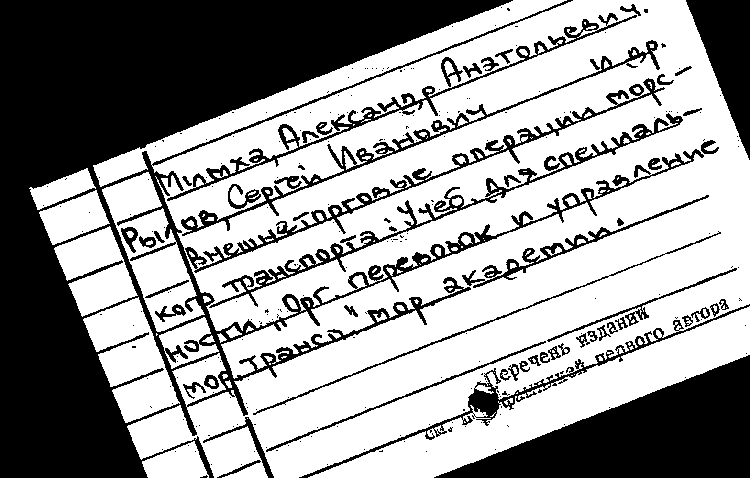 Митха, Александр Анатольевич.
Рылов, Сергей Иванович и др.
Внешнеторговые операции морс-
кого транспорта: Учеб. для специаль-
ности „Орг. перевозок и управление
мор. трансп." мор. академии.
Перечень изданий
см. первого автора